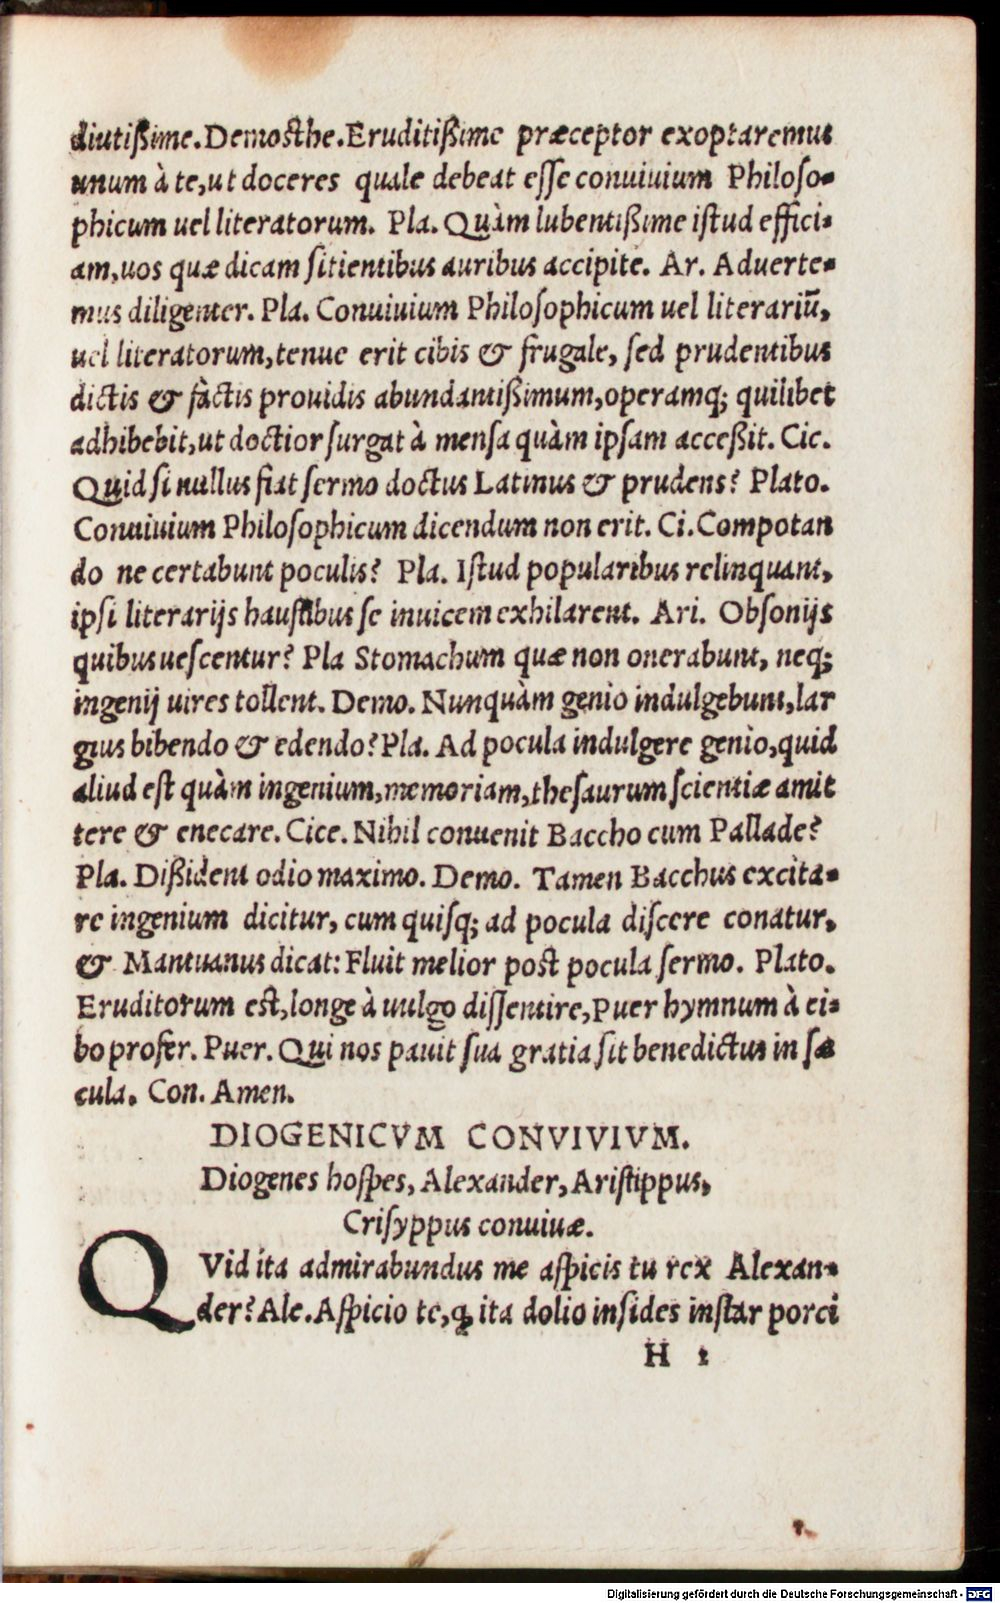 diutißime. Demosthe. Eruditißime præceptor exoptaremus
unum à te, ut doceres quale debeat esse conuiuium Philoso-
phicum uel literatorum. Pla. Quàm lubentißime istud effici-
am, uos quæ dicam sitientibus auribus accipite. Ar. Aduerte-
mus diligenter. Pla. Conuiuium Philosophicum uel literariū,
uel literatorum, tenue erit cibis & frugale, sed prudentibus
dictis & fàctis prouidis abundantißimum, operamq; quilibet
adhibebit, ut doctior surgat à mensa quàm ipsam acceßit. Cic.
Quid si nullus fiat sermo doctus Latinus & prudens? Plato.
Conuiuium Philosophicum dicendum non erit. Ci. Compotan
do ne certabunt poculis? Pla. Istud popularibus relinquant,
ipsi literarijs haustibus se inuicem exhilarent. Ari. Obsonijs
quibus uescentur? Pla Stomachum quæ non onerabunt, neq;
ingenij uires tollent. Demo. Nunquàm genio indulgebunt, lar
gius bibendo & edendo? Pla. Ad pocula indulgere genio, quid
aliud est quàm ingenium, memoriam, thesaurum scientiæ amit
tere & enecare. Cice. Nihil conuenit Baccho cum Pallade?
Pla. Dißident odio maximo. Demo. Tamen Bacchus excita-
re ingenium dicitur, cum quisq; ad pocula discere conatur,
& Mantuanus dicat: Fluit melior post pocula sermo. Plato.
Eruditorum est, longe à uulgo dissentire, Puer hymnum à ci-
bo profer. Puer. Qui nos pauit sua gratia sit benedictus in sæ
cula. Con. Amen.
DIOGENICVM CONVIVIVM.
Diogenes hospes, Alexander, Aristippus,
Crisyppus conuiuæ.
QVid ita admirabundus me aspicis tu rex Alexan-
der? Ale. Aspicio te, ꝙ ita dolio insides instar porci
H 1
Digitalisierung gefördert durch die Deutsche Forschungsgemeinschaft - DFG